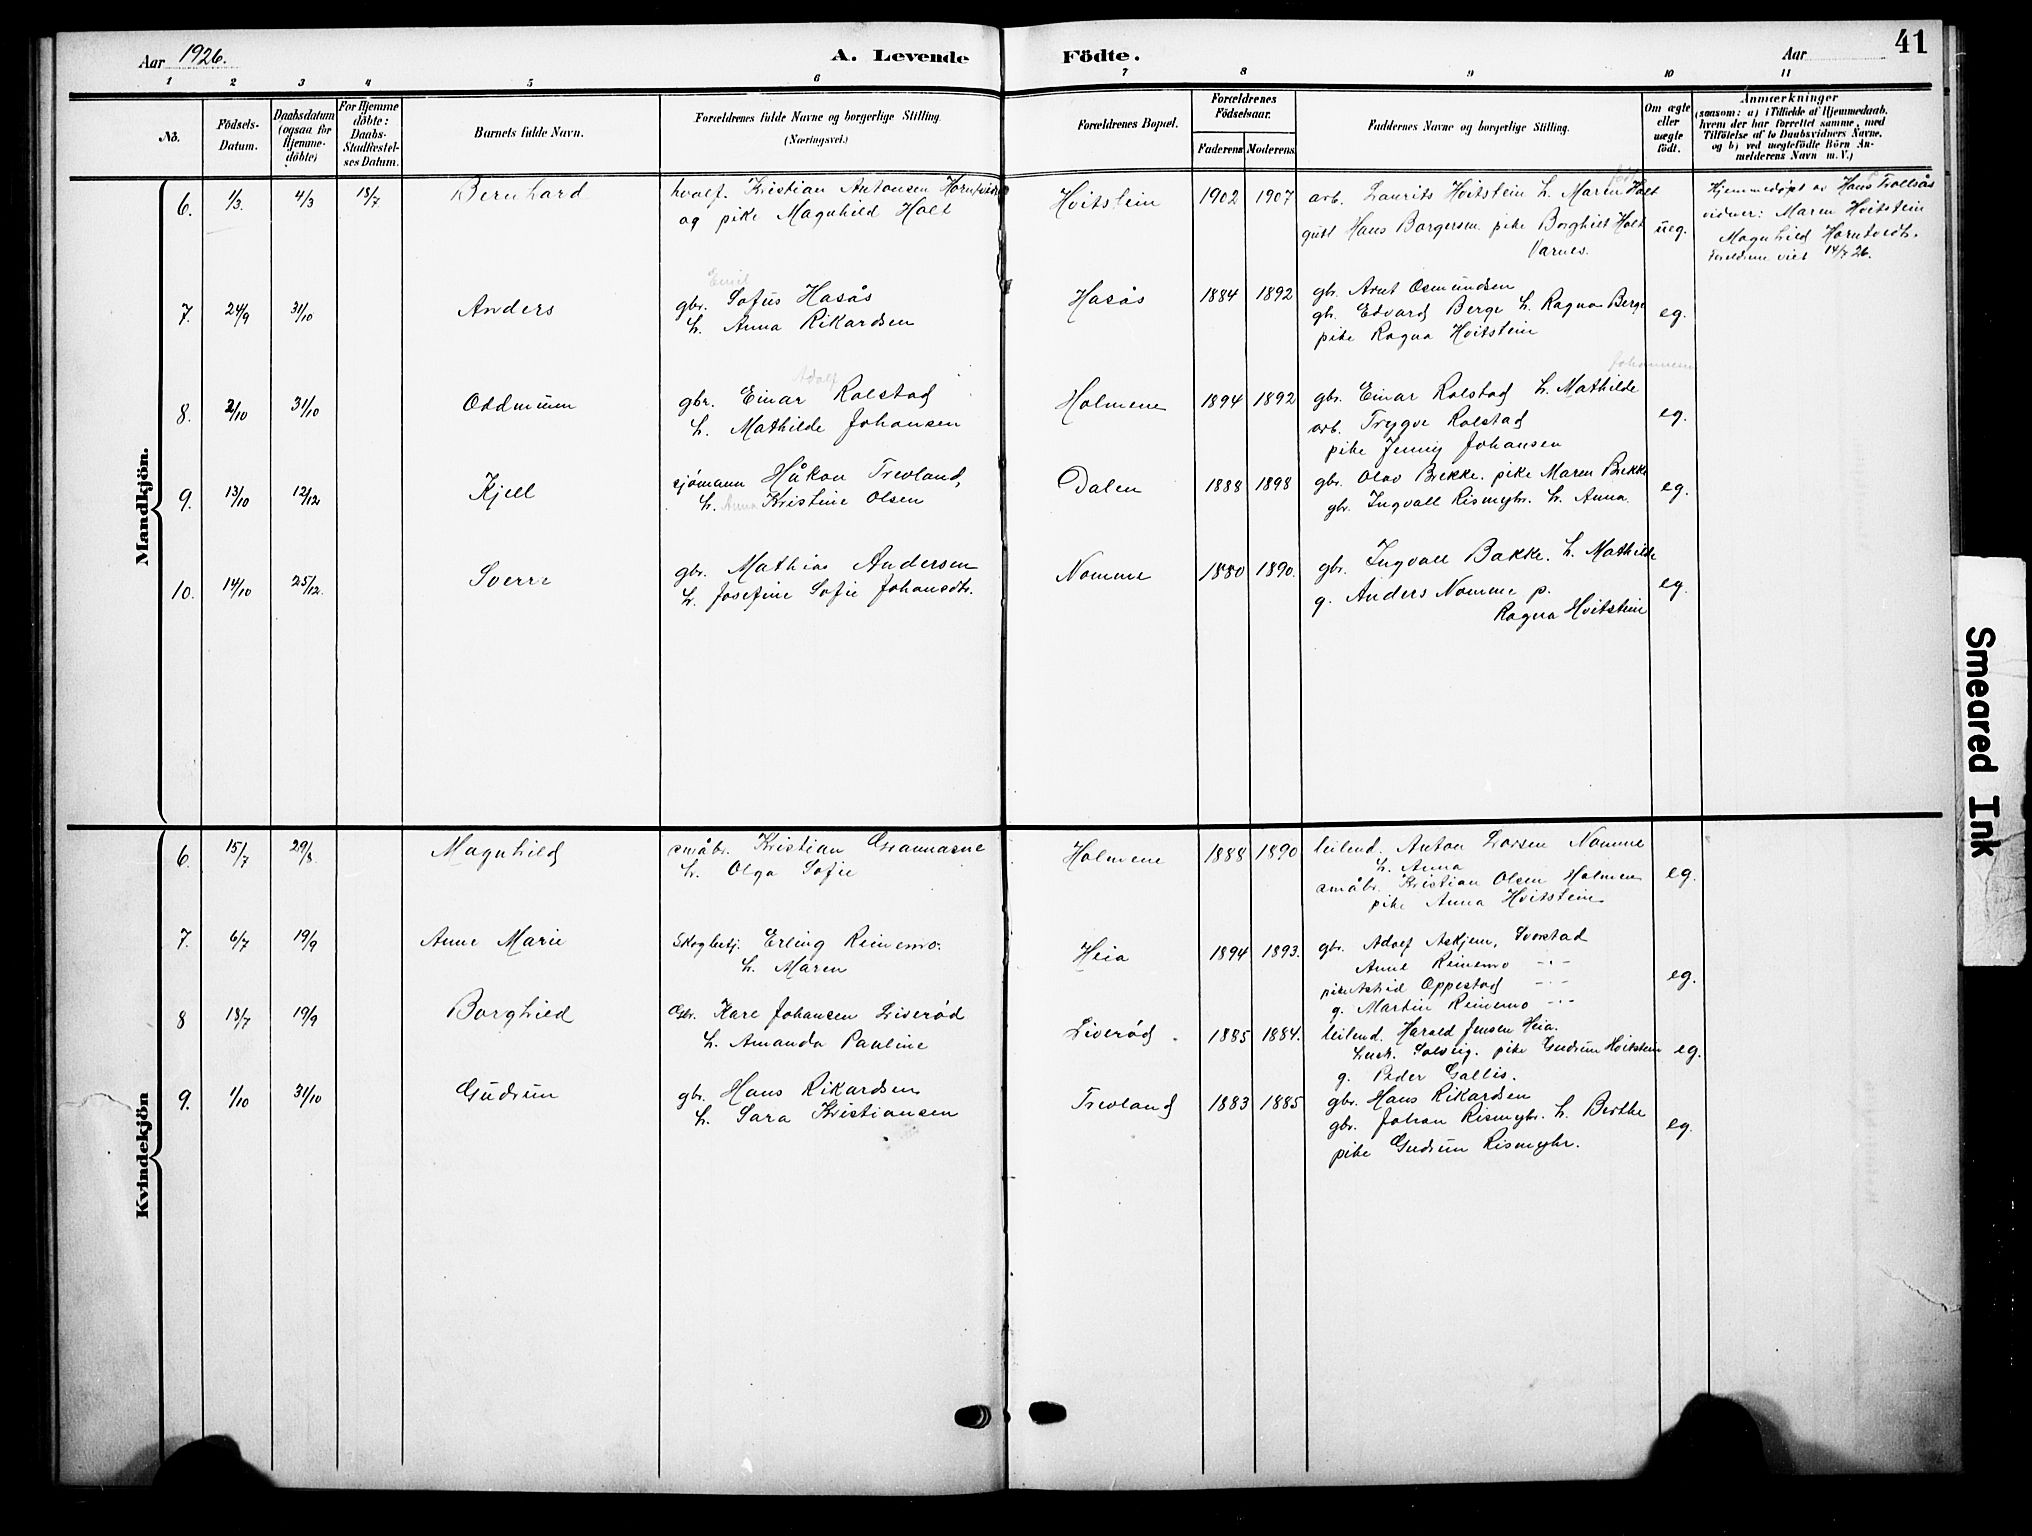 Aar 1926.
A. Levende Födte.
Aar
41
1 2 3 4 5 6 7 8 9 10 11
No.
Födsels-
Datum.
Daabsdatum
(ogsaa for
Hjemme-
döbte)
For Hjemme
döbte:
Daabs-
Stadfæstel-
ses Datum.
Barnets fulde Navn.
Forældrenes fulde Navne og borgerlige Stilling.
(Næringsvei.)
Forældrenes Bopæl.
Forældrenes
Födselsaar.
Faderens Moderens
Faddernes Navne og borgerlige Stilling.
Om ægte
eller
uægte
födt.
Anmærkninger
(saasom: a) i Tilfælde af Hjemmedaab.
hvem der har forrettet samme, med
Tilföielse af to Daabsvidners Navne.
og b) ved uægtefödte Börn An-
melderens Navn m. V.)
Mandkjön.
6. 1/3. 4/3 18/7 Bernhard
hvalf. Kristian Antonsen Horntvedt
og pike Magnhild Holt
Hvitstein 1902 1907
arb. Laurits Hvitstein h. Maren Holt
gutt Hans Borgersen pike Borghild Holt
Varnes.
ueg.
Hjemmedøpt av Hans Trollsås
vidner: Maren Hvitstein
Magnhild Horntvedt.
Foreldrene viet 14/7 26.
7. 24/9 31/10 Anders
Emil
gbr. Sofus Hasås
h. Anna Rikardsen
Hasås 1884 1892
gbr. Arnt Osmundsen
gb. Edvard Berge h. Ragna Berge
pike Ragna Hvitstein
eg.
8. 2/10 31/10 Oddmunn
Adolf
gbr. Einar Rolstad
h. Mathilde Johansen
Holmene 1894 1892
Johannesen
gbr. Einar Rolstad h. Mathilde
arb. Trygve Rolstad
pike Jenny Johansen
eg.
9. 13/10 12/12 Kjell
sjømann Håkon Trevland,
h. Anna Kristine Olsen
Dalen 1888 1898
gbr. Olav Bekke. pike Maren Bekke
gbr. Ingvall Rismyhr. h. Anna.
eg.
10. 14/10 25/12. Sverre
gbr. Mathias Andersen
h. Josefine Sofie Johansdtr.
Nomme 1880 1890.
gbr. Ingvall Bakke. h. Mathilde
g. Anders Nomme p.
Ragna Hvitstein
eg.
Kvindekjön
6. 15/7 29/8. Magnhild
småbr. Kristian Grannasne
h. Olga Sofie
Holmene 1888 1890
leilend. Anton Larsen Nomme
h. Anna
småbr. Kristian Olsen Holmen
pike Anna Hvitstein
eg.
7. 6/7 19/9 Anne Marie
Skogbetj. Erling Reinemo.
h. Maren
Heia 1894 1893.
gbr. Adolf Askjem, Svorstad
Anne Reinemo -"-
pike Astrid Oppestad -"-
g. Martin Reinemo -"-
eg.
8 18/7 19/9 Borghild
Gbr. Kare Johansen Liverød
h. Amanda Pauline
Liverød. 1885 1884.
leilend. Harald Jensen Heia.
hustr. Solveig. pike Gudrun Hvitstein
g. Peder Gallis.
eg.
9. 1/10 31/10 Gudrun
gbr. Hans Rikardsen
h. Sara Kristiansen
Trevland 1883 1885
gbr. Hans Rikardsen
gbr. Johan Rismyhr. h. Berthe
pike Gudrun Rismyhr.
eg.
Smeared Ink